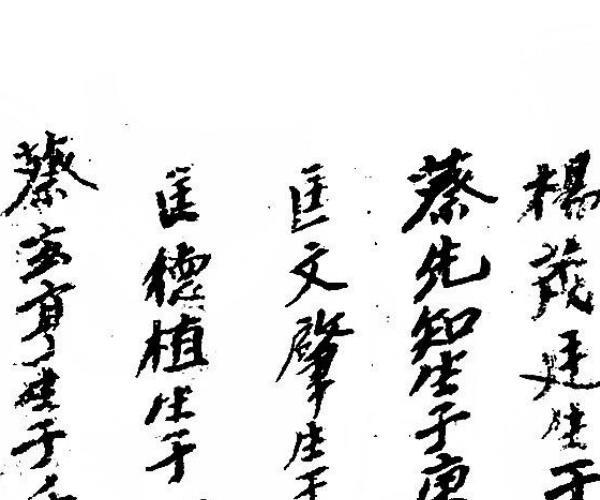 楊茂廷生于
蔡先知生于庚
匡文肇生于
匡德植生于
蔡亨生于